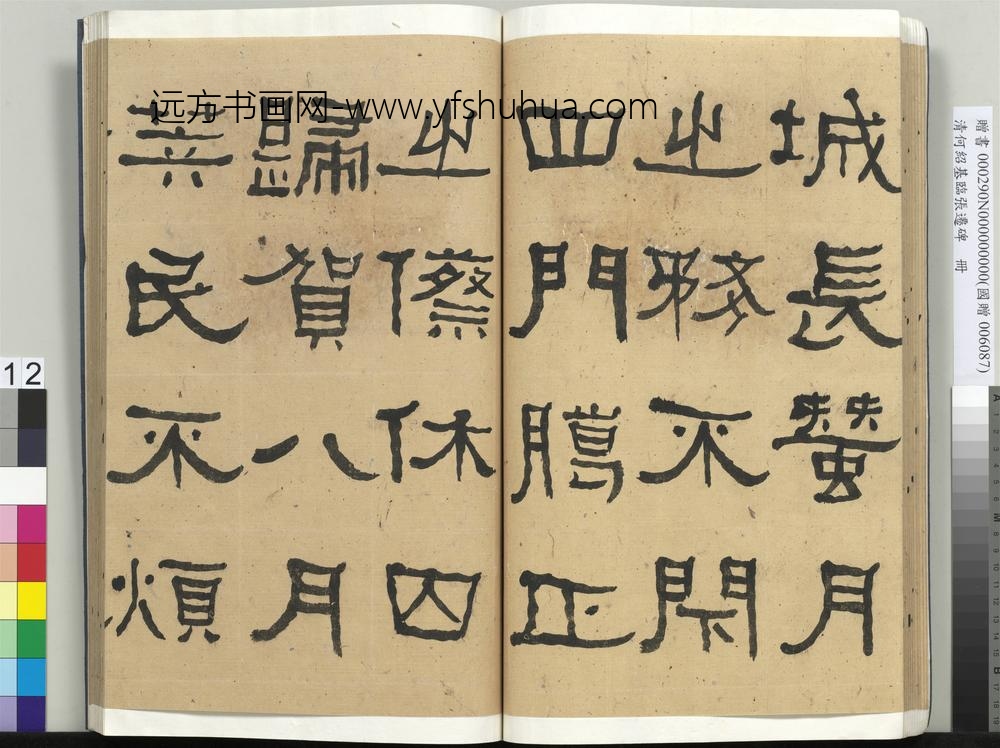 远方书画网-www.yfshuhua.com
城長蠶月
之務不閉
四門臘正
之傺休囚
歸賀八月
筭民不煩
贈書 000290N000000000(國贈 006087)
清何紹基臨張遷碑 冊
12